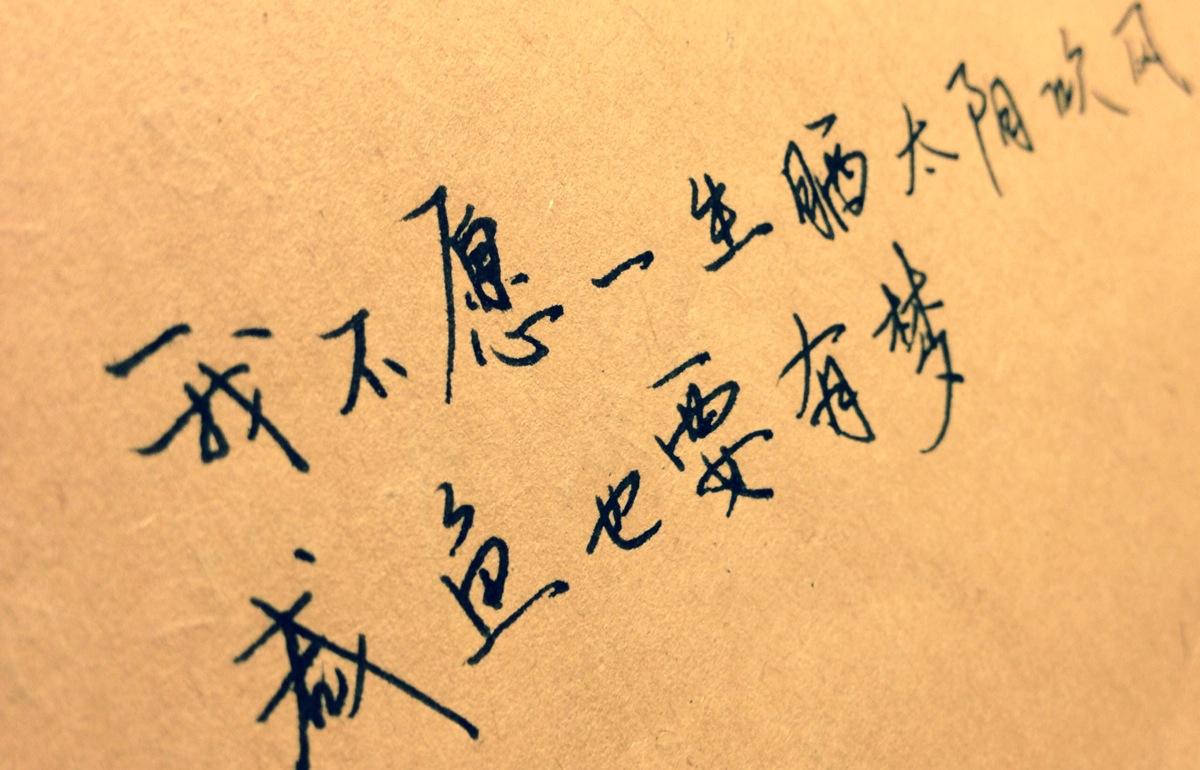 我不愿一生晒太阳吹风
咸鱼也要有梦